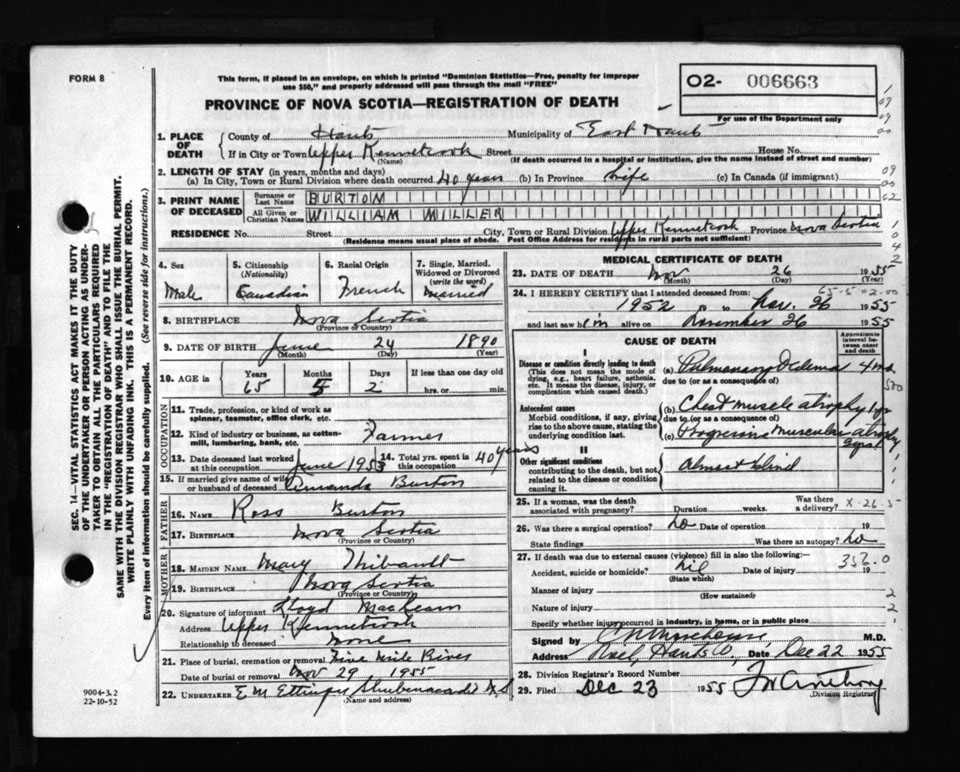 FORM 8
This form, if placed in an envelope, on which is printed "Dominion Statistics—Free, penalty for improper
use $50," and properly addressed will pass through the mail "FREE"
PROVINCE OF NOVA SCOTIA—REGISTRATION OF DEATH
O2- 006663
For use of the Department only
1. PLACE OF DEATH { County of Hants Municipality of East Hants
If in City or Town Upper Kennetcook Street House No.
(Name) (If death occurred in a hospital or institution, give the name instead of street and number)
2. LENGTH OF STAY (in years, months and days)
(a) In City, Town or Rural Division where death occurred 40 years (b) In Province Life (c) In Canada (if immigrant)
3. PRINT NAME OF DECEASED { Surname or Last Name BURTON
All Given or Christian Names WILLIAM MILLER
RESIDENCE No. Street City, Town or Rural Division Upper Kennetcook Province Nova Scotia
(Residence means usual place of abode. Post Office Address for residents in rural parts not sufficient)
4. Sex Male
5. Citizenship (Nationality) Canadian
6. Racial Origin French
7. Single, Married, Widowed or Divorced (write the word) Married
8. BIRTHPLACE Nova Scotia
(Province or Country)
9. DATE OF BIRTH June 24 1890
(Month) (Day) (Year)
10. AGE in { Years 65 Months 5 Days 2 If less than one day old
hrs. or min.
OCCUPATION
11. Trade, profession, or kind of work as spinner, teamster, office clerk, etc.
12. Kind of industry or business, as cotton-mill, lumbering, bank, etc. Farmer
13. Date deceased last worked at this occupation June 1953 14. Total yrs. spent in this occupation 40 years
15. If married give name of wife or husband of deceased Amanda Burton
FATHER
16. NAME Ross Burton
17. BIRTHPLACE Nova Scotia
(Province or Country)
MOTHER
18. MAIDEN NAME Mary Thibault
19. BIRTHPLACE Nova Scotia
(Province or Country)
20. Signature of informant Lloyd
Address Upper Kennetcook
Relationship to deceased None
21. Place of burial, cremation or removal Nine Mile River
Date of burial or removal Nov 29 1955
22. UNDERTAKER E M Ettinger Shubenacadie N.S.
(Name and address)
MEDICAL CERTIFICATE OF DEATH
23. DATE OF DEATH Nov 26 1955
(Month) (Day) (Year)
24. I HEREBY CERTIFY that I attended deceased from:
1952 to Nov. 26 1955
and last saw him alive on November 26 1955
CAUSE OF DEATH
Approximate interval between onset and death
I
Disease or condition directly leading to death
(This does not mean the mode of dying, e.g., heart failure, asthenia, etc. It means the disease, injury, or complication which caused death.)
(a) Pulmonary Oedema
due to (or as a consequence of)
Antecedent causes
Morbid conditions, if any, giving rise to the above cause, stating the underlying condition last.
(b) Chest muscle atrophy 1 yr
due to (or as a consequence of)
(c) Progressive muscular atrophy
II
Other significant conditions
contributing to the death, but not related to the disease or condition causing it.
almost blind
25. If a woman, was the death associated with pregnancy? Duration weeks. Was there a delivery?
26. Was there a surgical operation? no Date of operation 19
State findings Was there an autopsy? no
27. If death was due to external causes (violence) fill in also the following:
Accident, suicide or homicide? nil Date of injury 19
(State which)
356.0
Manner of injury
(How sustained)
Nature of injury
Specify whether injury occurred in industry, in home, or in public place
Signed by M.D.
Address Noel, Hants Co, Date Dec 22 1955
28. Division Registrar's Record Number
29. Filed Dec 23 1955
Division Registrar
SEC. 14—VITAL STATISTICS ACT MAKES IT THE DUTY
OF THE UNDERTAKER OR PERSON ACTING AS UNDER-
TAKER TO OBTAIN ALL THE PARTICULARS REQUIRED
IN THE "REGISTRATION OF DEATH" AND TO FILE THE
SAME WITH THE DIVISION REGISTRAR WHO SHALL ISSUE THE BURIAL PERMIT.
WRITE PLAINLY WITH UNFADING INK. THIS IS A PERMANENT RECORD.
Every item of information should be carefully supplied. (See reverse side for instructions.)
9004-3.2
22-10-52